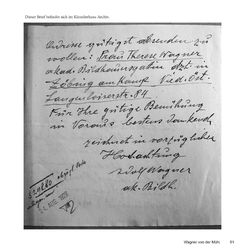 Dieser Brief befindet sich im Künstlerhaus Archiv.
Adresse gütigst absenden zu
wollen: Frau Therese Wagner
akad. Bildhauersgattin dzt. in
am Kamp Nied. Öst.
84.
Für Ihre gütige Bemühung
im Voraus bestens dankend,
zeichnet in vorzüglicher
Hochachtung
Adolf Wagner
ak. Bildh.
Wagner von der Mühl